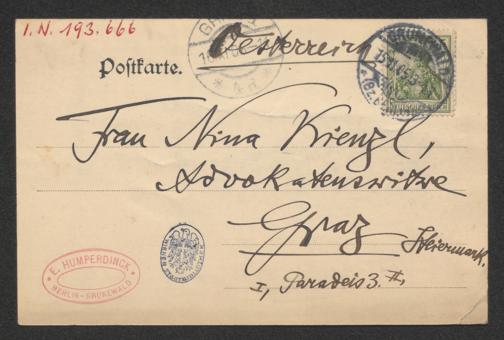 I.N. 193.666
Oesterreich
Postkarte.
GRUNEWALD
Frau Nina Kienzl,
Advokatenswitwe
Graz
Steiermark.
I, Paradeis 3. II.
* E. HUMPERDINCK *
BERLIN-GRUNEWALD